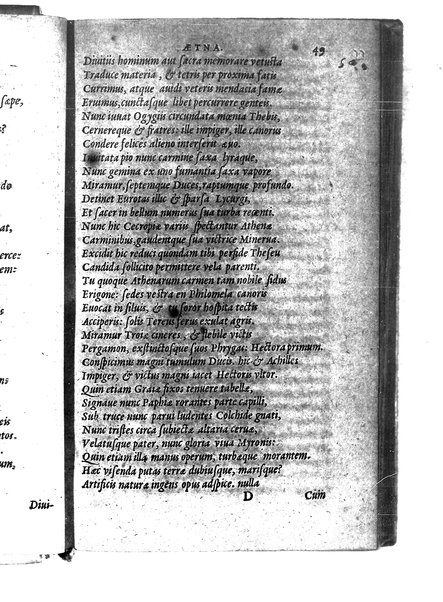 ÆTNA. 49
Diuitiis hominum aut sacra memorare vetusta
Traduce materia, & tetris per proxima fatis
Currimus, atque auidi veteris mendasia famæ
Eruimus, cunctasque libet percurrere genteis.
Nunc iuuat Ogygiis circundata mœnia Thebis,
Cernereque & fratres: ille impiger, ille canorus
Condere felices alieno interserit æuo.
Inuitata pio nunc carmine saxa lyraque,
Nunc gemina ex uno fumantia saxa vapore
Miramur, septemque Duces, raptumque profundo.
Detinet Eurotas illic & sparsa Lycurgi,
Et sacer in bellum numerus sua turba recenti.
Nunc hic Cecropiæ variis spectantur Athenæ
Carminibus, gaudentque sua victrice Minerua.
Excidit hic reduci quondam tibi perfide Theseu
Candida sollicito permittere vela parenti.
Tu quoque Athenarum carmen tam nobile sidus
Erigone: sedes vestra en Philomela canoris
Euocat in siluis, & tu soror hospita tectis
Acciperis: solis Tereus ferus exulat agris.
Miramur Troiæ cineres, & flebile victis
Pergamon, exstinctosque suos Phrygas: Hectora primum.
Conspicimus magni tumulum Ducis. hic & Achilles
Impiger, & victus magni iacet Hectoris vltor.
Quin etiam Graiæ fixos tenuere tabellæ,
Signaue nunc Paphiæ rorantes parte capilli,
Sub truce nunc parui ludentes Colchide gnati,
Nunc tristes circa subiectæ altaria ceruæ,
Velatusque pater, nunc gloria viua Myronis:
Quin etiam illa manus operum, turbæque morantem.
Hæc visenda putas terræ dubiusque, marisque?
Artificis naturæ ingens opus adspice. nulla
D Cùm
sæpe,
s?
at,
erce:
tem:
ns
tos.
am,
Diui-